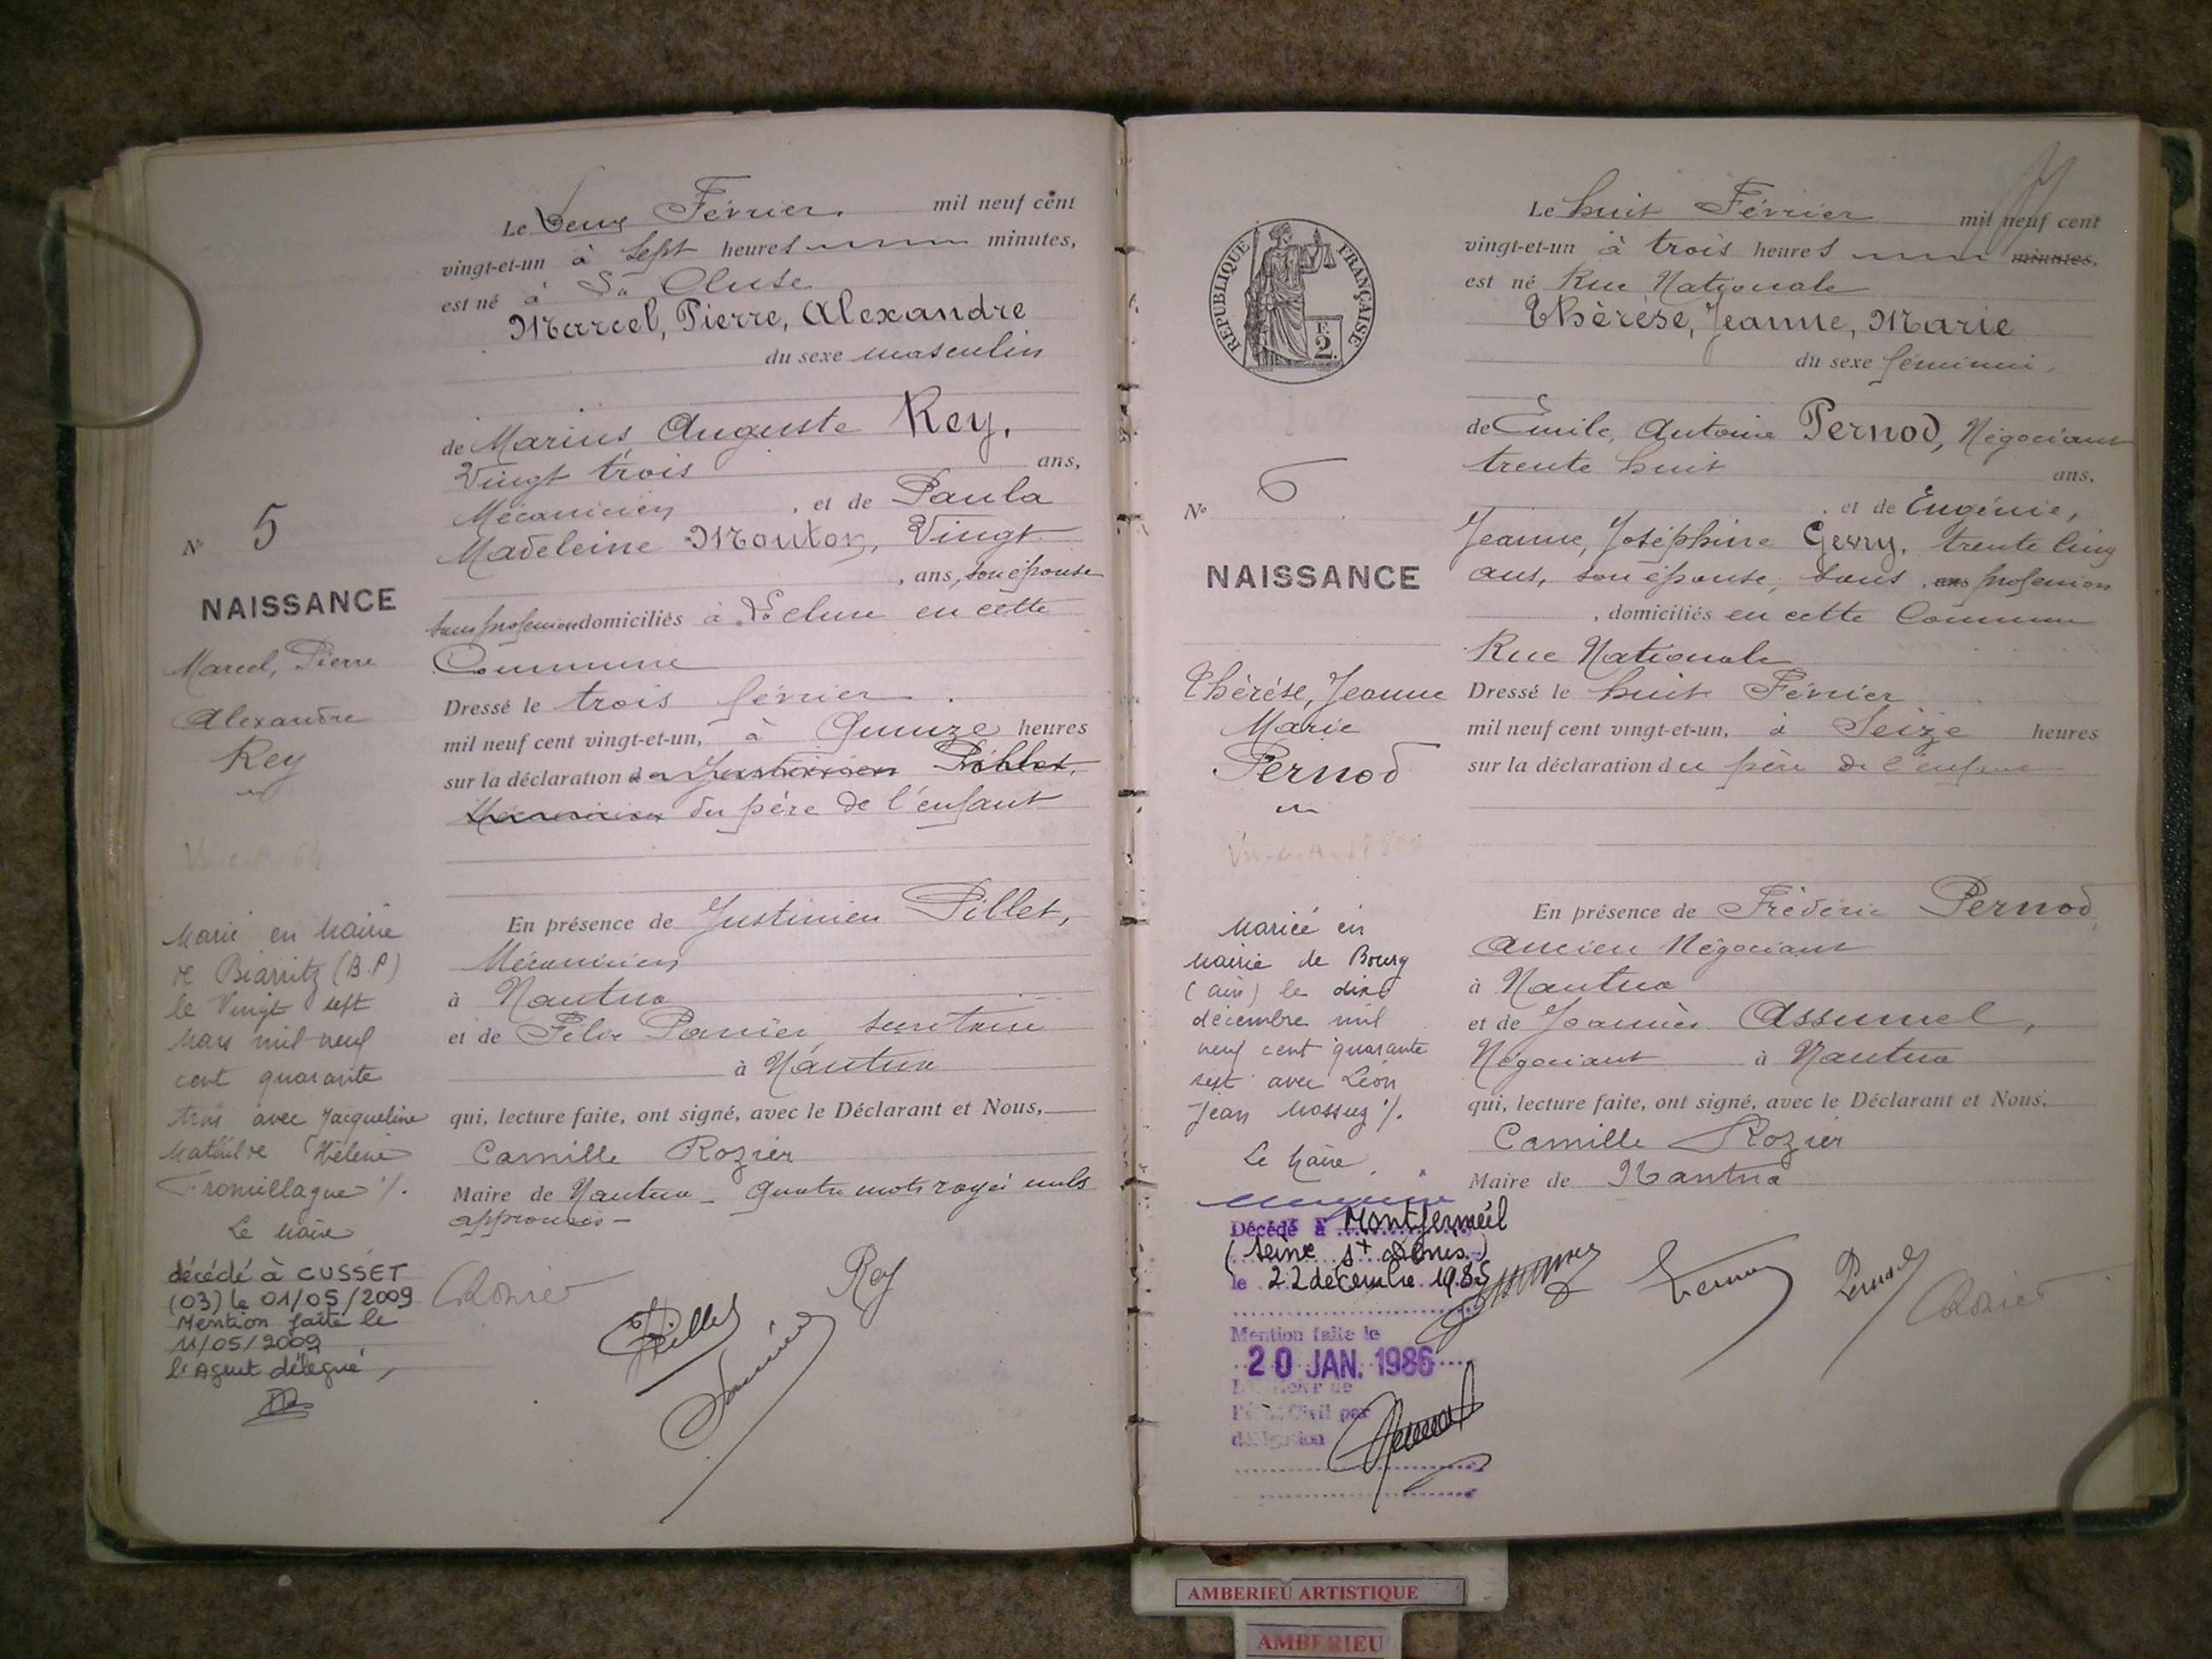 Le Deux Février. mil neuf cent
vingt-et-un à sept heures minutes,
est né à La Cluse
Marcel, Pierre, Alexandre
du sexe masculin
de Marius, Auguste Rey,
Vingt trois ans,
Mécanicien, et de Paula
Madeleine Mouton, Vingt
, ans, son épouse
sans profession domiciliés à La cluse en cette
Commune
Dressé le trois février.
mil neuf cent vingt-et-un, à Quinze heures
sur la déclaration de Justinien Pillet,
Mécanicien du père de l'enfant
En présence de Justinien Pillet,
Mécanicien
à Nantua
et de Félix Panier, secrétaire
à Nantua
qui, lecture faite, ont signé, avec le Déclarant et Nous,
Camille Rozier
Maire de Nantua - Quatre mots rayés nuls
approuvés -
Rozier
Pillet
Rey
N° 5
NAISSANCE
Marcel, Pierre
Alexandre
Rey
Marié en Mairie
de Biarritz (B.P)
le Vingt sept
Mars mil neuf
cent quarante
trois avec Jacqueline
Mathilde Hélène
Fromillague %.
Le Maire
décédé à CUSSET
(03) le 01/05/2009
Mention faite le
11/05/2009
l'Agent délégué,
REPUBLIQUE FRANÇAISE
E.
2.
Le huit Février mil neuf cent
vingt-et-un à trois heures minutes.
est né Rue Nationale
Thérèse, Jeanne, Marie
du sexe féminin,
de Emile, Antoine Pernod, Négociant
trente huit ans.
, et de Eugénie,
Jeanne, Joséphine Gevry, trente cinq
ans, son épouse, sans, ans profession
, domiciliés en cette Commune
Rue Nationale
Dressé le huit Février
mil neuf cent vingt-et-un, à Seize heures
sur la déclaration du père de l'enfant
En présence de Frédéric Pernod,
Ancien Négociant
à Nantua
et de Joannès Assumel,
Négociant à Nantua
qui, lecture faite, ont signé, avec le Déclarant et Nous,
Camille Rozier
Maire de Nantua
Pernod
Rozier
N° 6
NAISSANCE
Thérèse, Jeanne
Marie
Pernod
Mariée en
Mairie de Bourg
(Ain) le dix
décembre mil
neuf cent quarante
sept avec Léon
Jean Mossuz %.
Le Maire.
Décédé à Montfermeil
(Seine St Denis)
le 22 décembre 1985
Mention faite le
20 JAN. 1986
L'Officier de
l'Etat Civil par
délégation
AMBERIEU ARTISTIQUE
AMBERIEU